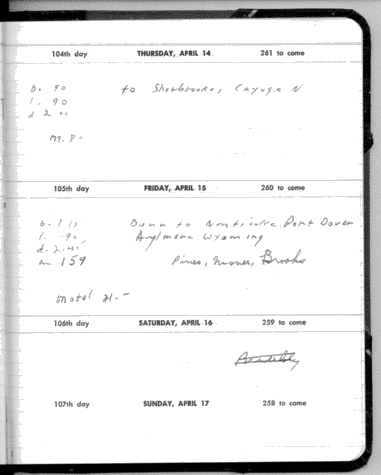 104th day THURSDAY, APRIL 14 261 to come
D. 90 to Sherbrooke, Cayuga N
l. 90
d 2
m. 80
105th day FRIDAY, APRIL 15 260 to come
b. 1 Dunn to Port Dover
l. .90 Wyoming
d. 2.45
m 159 Pines, Brooks
motel 21.-
106th day SATURDAY, APRIL 16 259 to come
107th day SUNDAY, APRIL 17 258 to come